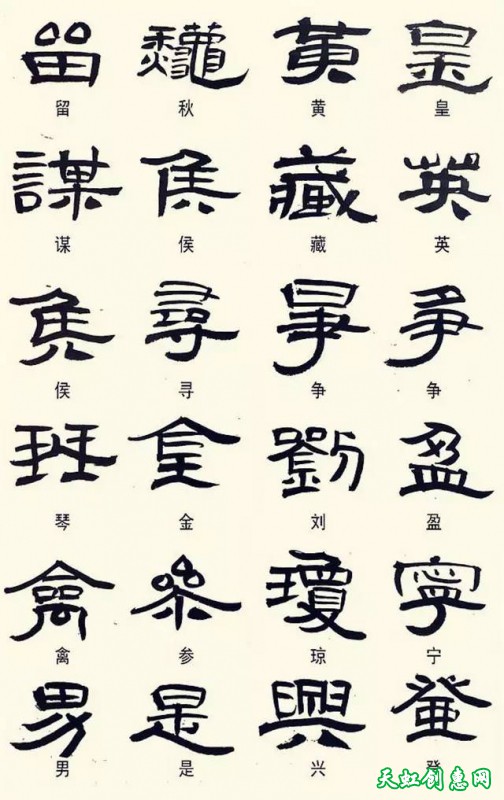 留 龝 黄 皇
留 秋 黄 皇
謀 侯 藏 英
谋 侯 藏 英
侯 尋 爭 爭
侯 寻 争 争
金 劉 盈
琴 金 刘 盈
禽 參 瓊 寧
禽 参 琼 宁
男 是 興 登
男 是 兴 登
天虹创意网